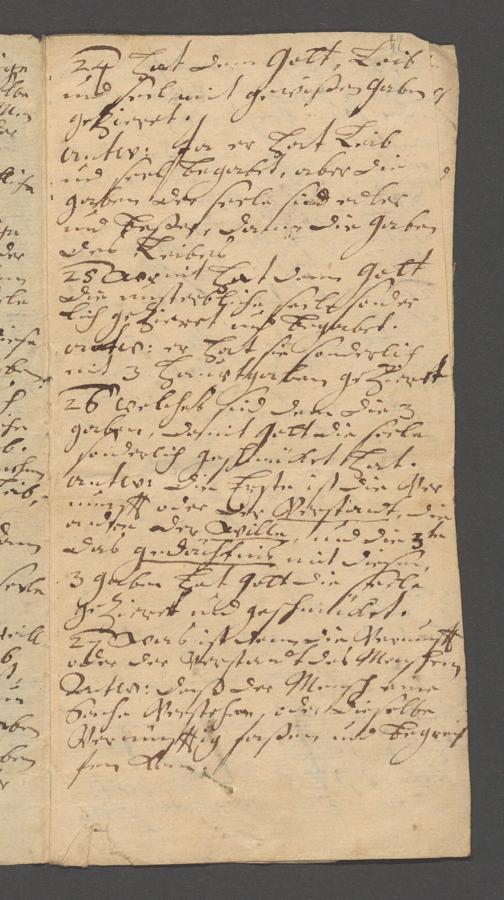 24 Hat denn Gott, Leib
und seel, mit gewißen gaben
gezieret.
antw: Ja er hat Leib
und seel begabet, aber die
gaben der seele sind edler
und beßer, dann die gaben
des Leibes
25 Wormit hat denn Gott
die unsterbliche seele sonder
lich gezieret und begabet.
antw: er hat sie sonderlich
mit 3 Hauptgaben gezieret
26 welches sind denn die 3
gaben, damit Gott die seele
sonderlich geschmücket hat.
antw: die Erste ist die Ver
nunfft oder der Verstandt, die
andre der Wille, und die 3te
das gedächtnis mit diesen
3 gaben hat Gott die seele
gezieret und geschmücket.
27 Was ist denn die Vernunfft
oder der Verstandt des Menschen
Antw: daß der Mensch eine
Sache Verstehen, oder dieselbe
Vernünfftig faßen und begreif
fen kan.